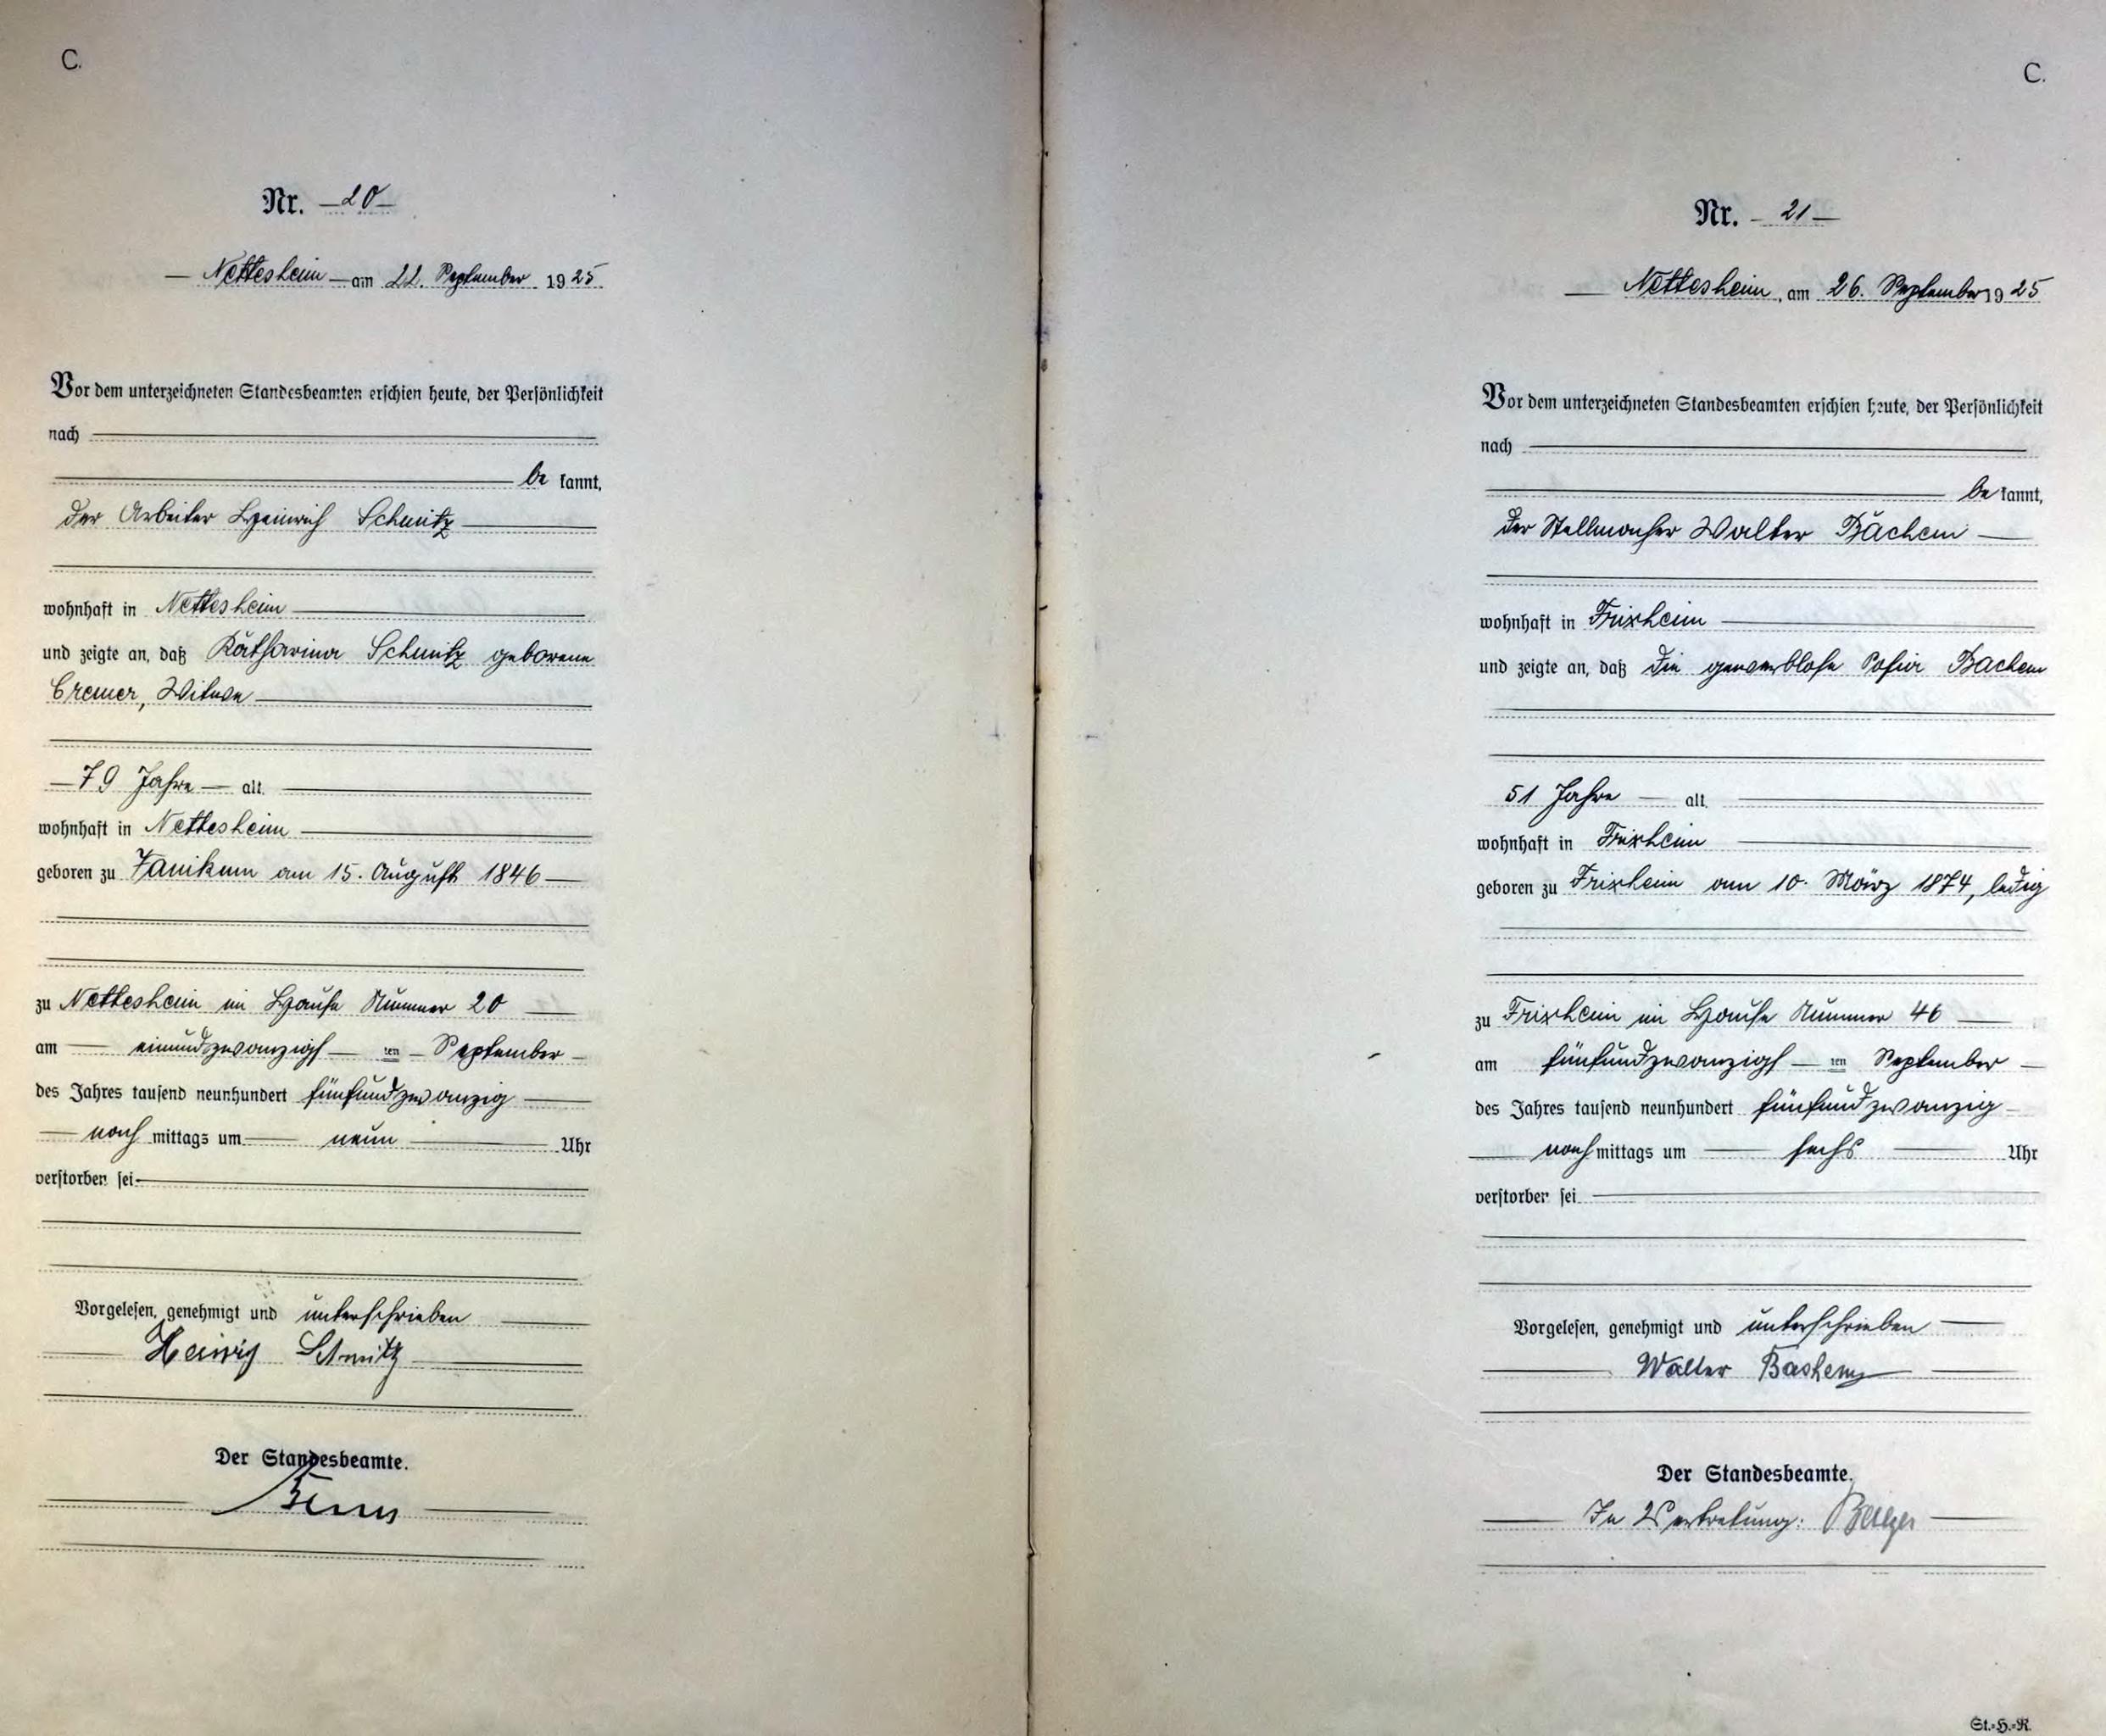 C.
Nr. 20
Nettesheim am 22. September 1925
Vor dem unterzeichneten Standesbeamten erschien heute, der Persönlichkeit
nach
be kannt,
der Arbeiter Heinrich Schmitz
wohnhaft in Nettesheim
und zeigte an, daß Katharina Schmitz geborene
Cremer, Witwe
79 Jahre alt,
wohnhaft in Nettesheim
geboren zu Vanikum am 15. August 1846
zu Nettesheim im Hause Nummer 20
am einundzwanzigsten September
des Jahres tausend neunhundert fünfundzwanzig
nach mittags um neun Uhr
verstorben sei
Vorgelesen, genehmigt und unterschrieben
Heinrich Schmitz
Der Standesbeamte.
C.
Nr. 21
Nettesheim, am 26. September 1925
Vor dem unterzeichneten Standesbeamten erschien heute, der Persönlichkeit
nach
be kannt,
der Stellmacher Walter Bachem
wohnhaft in Frixheim
und zeigte an, daß die gewerblose Sofia Bachem
51 Jahre alt,
wohnhaft in Frixheim
geboren zu Frixheim am 10. März 1874, ledig
zu Frixheim im Hause Nummer 46
am fünfundzwanzigsten September
des Jahres tausend neunhundert fünfundzwanzig
nach mittags um sechs Uhr
verstorben sei
Vorgelesen, genehmigt und unterschrieben
Walter Bachem
Der Standesbeamte.
In Vertretung:
St.-H.-R.